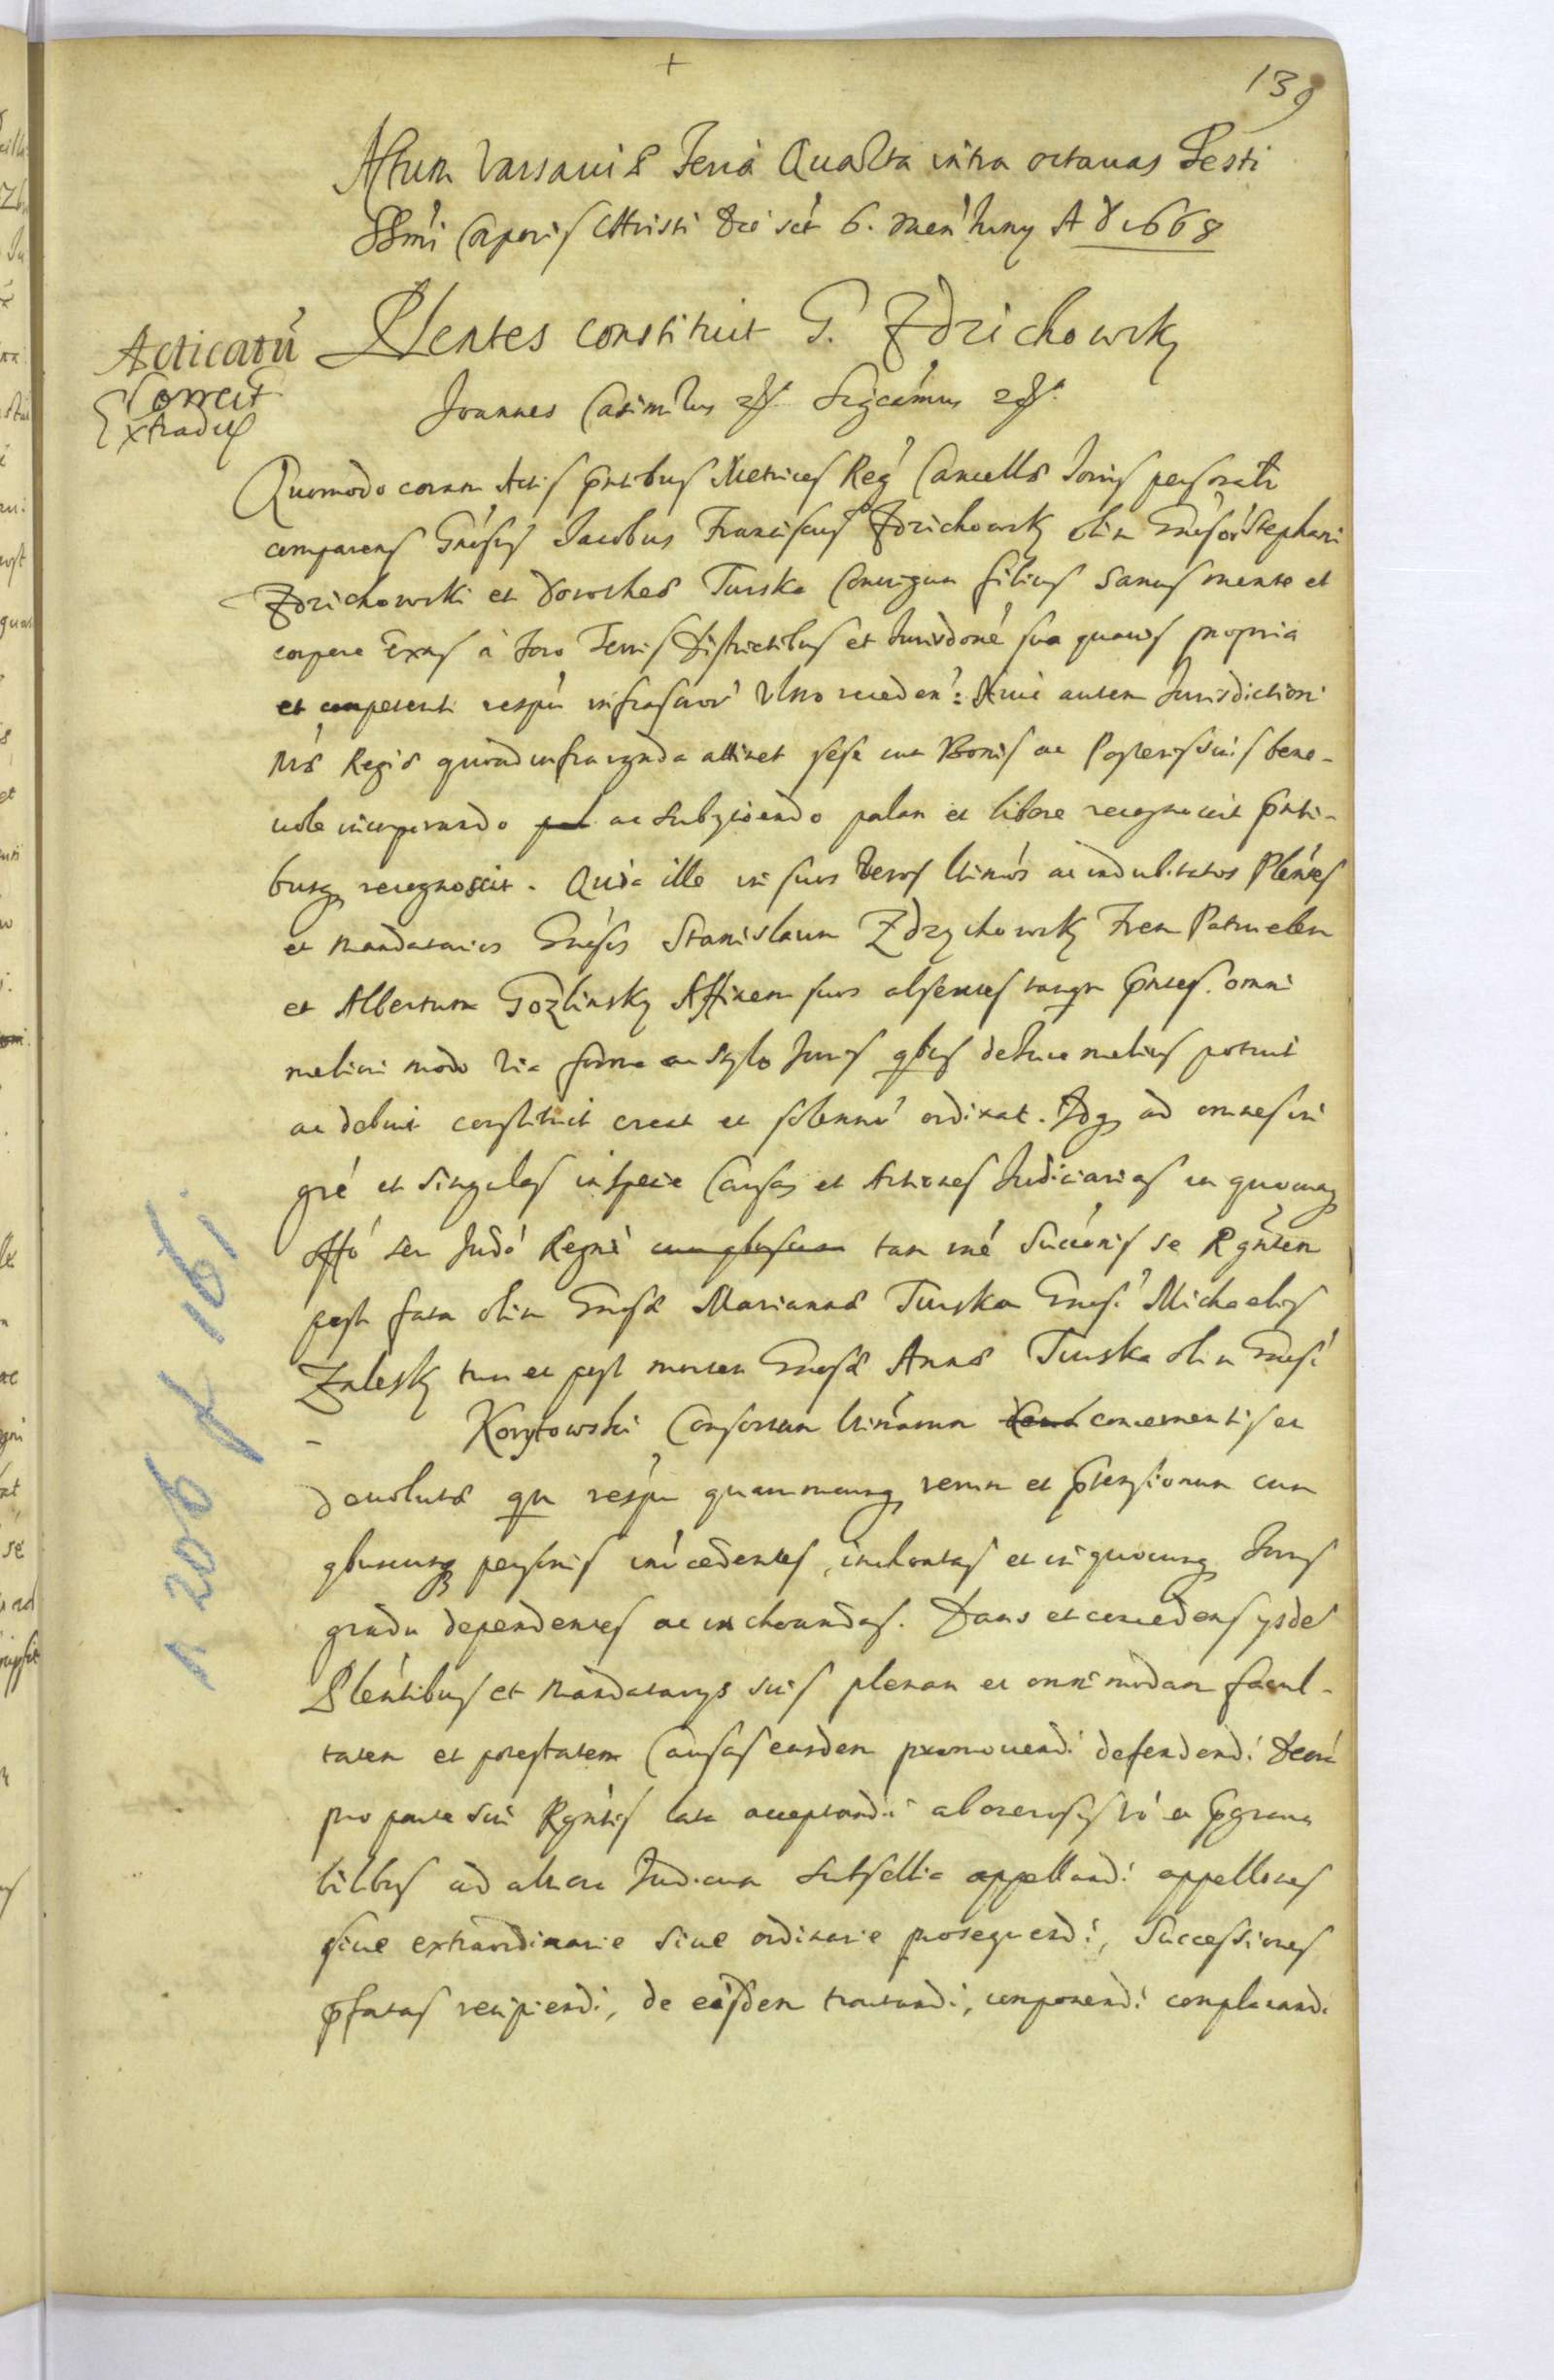 139
Actum Varsaviæ Feria Quarta intra octavas Festi
SSmi Corporis Christi die sct 6. men Juny A D 1668
Acticatu
Correct
Extradit
Plentes constituit G. Zdrichowsky
Joannes Casimirus etc. Significamus etc.
Quomodo coram Actis pntibus Metrices Regni Cancellæ Maioris personaliter
comparens Gnesus Jacobus Franciscus Zdrichowsky olim Gnesor Stephani
Zdrichowski et Dorotheæ Turska Coniugum filius sanus mente et
corpore Exns à foro Terris Districtibus et Jurisdone sua quavis propria
et competenti respu infrascror vltro receden: Huic autem Jurisdictioni
Mtis Regiæ quoad infra cognda attinet sese cum Bonis ac Posteris suis bene-
uole incorporando ac subijciendo palam et libere recognovit pnti-
busq recognoscit. Quia ille in suos veros ltimos ac indubitatos Plentes
et mandatarios Gnesos Stanislaum Zdzychowsky Frem Patruelem
et Albertum Gozlinsky Affinem suos absentes tanqm pntes omni
meliori modo via forma ac stylo Juris qbus de Jure melius potuit
ac debuit constituit creat et solenni ordinat. Idq ad omnes in
gre et singulas in specie Causas et Actiones Judiciarias in quocunq
Offo seu Judo Regni tam rne Succeonis se Rgnten
post fata olim Gnesæ Mariannæ Turska Gnesi Michaelis
Zalesky tum et post mortem Gnesæ Annæ Turska olim Gnesi
- Korytowski Consortum ltimarum concernentis et
devolutæ qm respu quarumcunq rerum et prtensionum cum
qbuscunq personis intcedentes, inchoatas et in quocunq Juris
gradu dependentes ac inchoandas. Dans et concedens ijsdem
Plentibus et Mandatarijs suis plenam et omnimodam facul-
tatem et potestatem Causas easdem promouendi defendendi Decrta
pro parte sui Rgntis lata acceptandi ab onerosis vo et pgraua
bilibus ad altiora Judiciorum Subsellia appellandi appellones
siue extraordinarie siue ordinarie prosequendi, Successiones
pfatas recipiendi, de eisdem tractandi, componendi complanandi